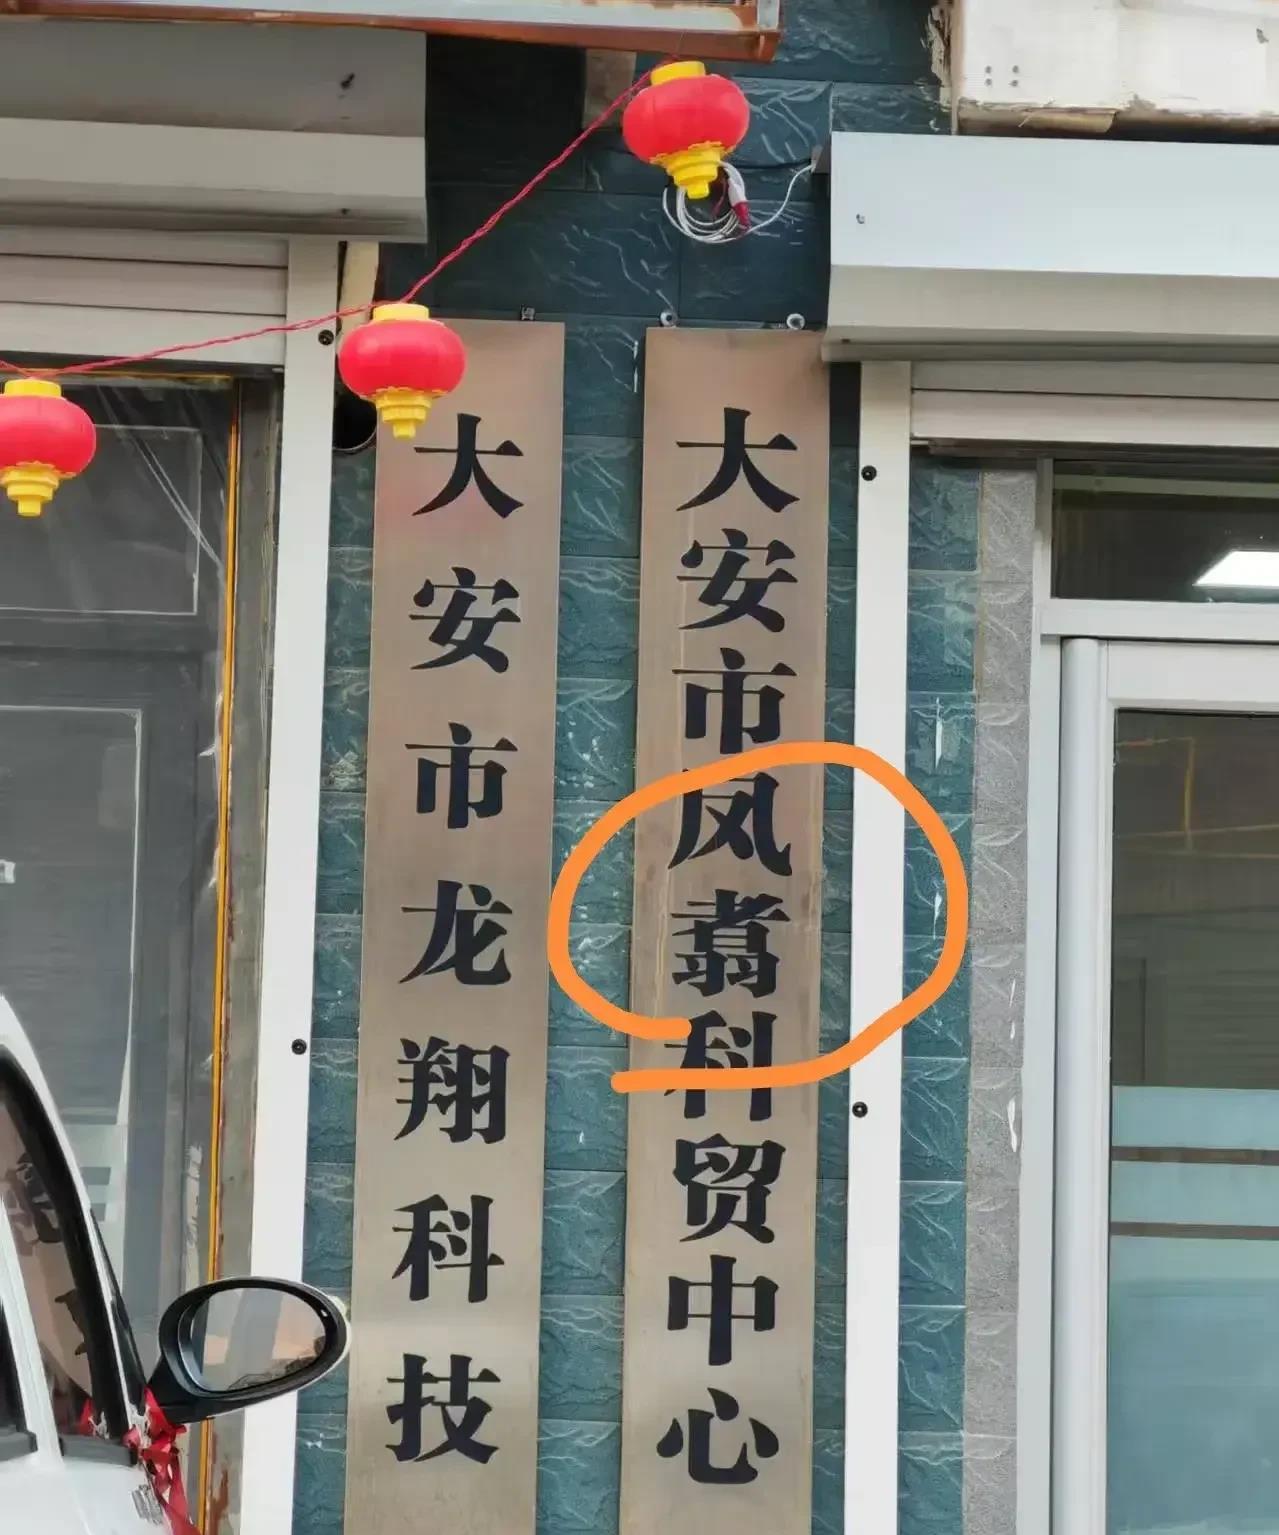 大安市龙翔科技
大安市凤翥科贸中心